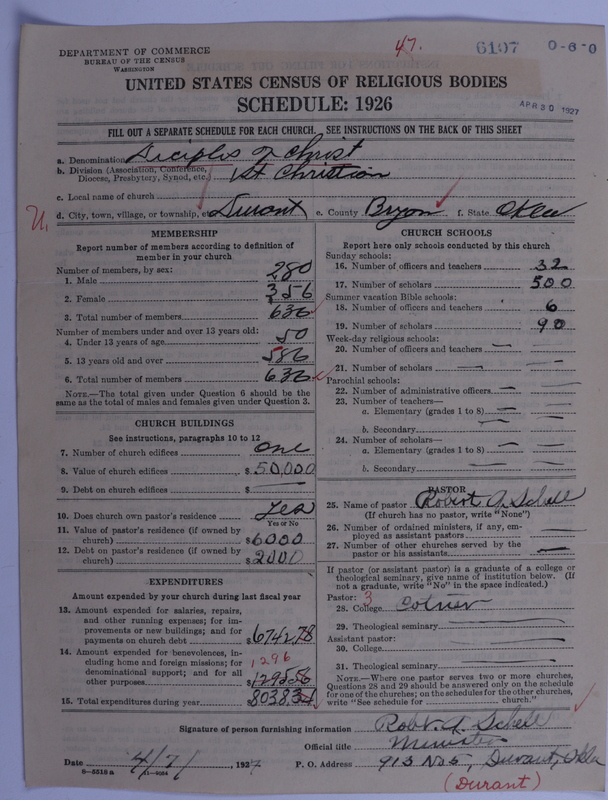 47. 6197 0-6-0
DEPARTMENT OF COMMERCE
BUREAU OF THE CENSUS
WASHINGTON
UNITED STATES CENSUS OF RELIGIOUS BODIES
SCHEDULE: 1926
APR 30 1927
FILL OUT A SEPARATE SCHEDULE FOR EACH CHURCH. SEE INSTRUCTIONS ON THE BACK OF THIS SHEET
a. Denomination Disciples of Christ
b. Division (Association, Conference,
Diocese, Presbytery, Synod, etc.) 1st Christian
c. Local name of church
d. City, town, village, or township, etc. Durant e. County Bryon f. State Okla
MEMBERSHIP
Report number of members according to definition of
member in your church
Number of members, by sex:
1. Male 280
2. Female 356
3. Total number of members 636
Number of members under and over 13 years old:
4. Under 13 years of age 50
5. 13 years old and over 586
6. Total number of members 636
NOTE.—The total given under Question 6 should be the
same as the total of males and females given under Question 3.
CHURCH BUILDINGS
See instructions, paragraphs 10 to 12
7. Number of church edifices One
8. Value of church edifices $50,000
9. Debt on church edifices $
10. Does church own pastor's residence? Yes
Yes or No
11. Value of pastor's residence (if owned by
church) $6000
12. Debt on pastor's residence (if owned by
church) $2000
EXPENDITURES
Amount expended by your church during last fiscal year
13. Amount expended for salaries, repairs,
and other running expenses; for im-
provements or new buildings; and for
payments on church debt $6742.78
14. Amount expended for benevolences, in-
cluding home and foreign missions; for
denominational support; and for all
other purposes 1296 $1295.56
15. Total expenditures during year $8038.34
CHURCH SCHOOLS
Report here only schools conducted by this church
Sunday schools:
16. Number of officers and teachers 32
17. Number of scholars 500
Summer vacation Bible schools:
18. Number of officers and teachers 6
19. Number of scholars 90
Week-day religious schools:
20. Number of officers and teachers —
21. Number of scholars —
Parochial schools:
22. Number of administrative officers —
23. Number of teachers—
a. Elementary (grades 1 to 8) —
b. Secondary —
24. Number of scholars—
a. Elementary (grades 1 to 8) —
b. Secondary —
PASTOR
25. Name of pastor Robert A. Schell
(If church has no pastor, write "None")
26. Number of ordained ministers, if any, em-
ployed as assistant pastors —
27. Number of other churches served by the
pastor or his assistants —
If pastor (or assistant pastor) is a graduate of a college or
theological seminary, give name of institution below. (If
not a graduate, write "No" in the space indicated.)
Pastor: 3
28. College Cotner
29. Theological seminary —
Assistant pastor:
30. College —
31. Theological seminary —
NOTE.—Where one pastor serves two or more churches,
Questions 28 and 29 should be answered only on the schedule
for one of the churches; on the schedules for the other churches,
write "See schedule for church."
Signature of person furnishing information Robt. A. Schell
Official title Minister
Date 4/7/, 1927 P. O. Address 913 No 5, Durant, Okla
8—5518 a 11—9064
(Durant)